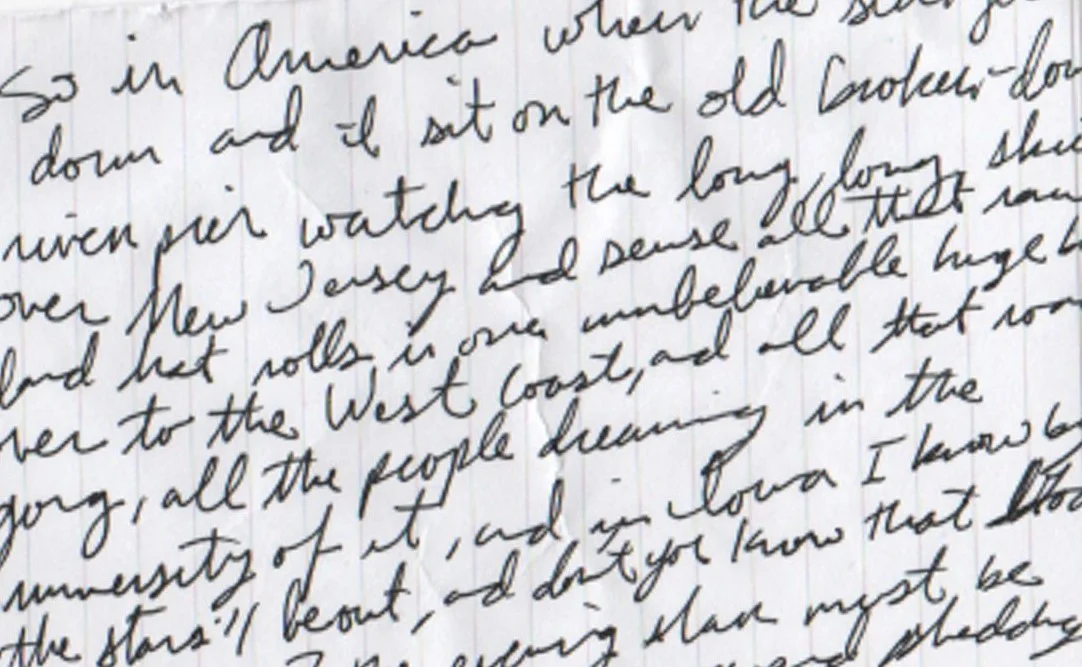 So in America when the sun go
down and I sit on the old broken-dow
river pier watching the long, long, skie
over New Jersey and sense all that raw
land that rolls in one unbelievable huge b
ver to the West Coast, and all that roa
going, all the people dreaming in the
immensity of it, and in Iowa I know by
the stars'll be out, and don't you know that
evening star must be
shedding